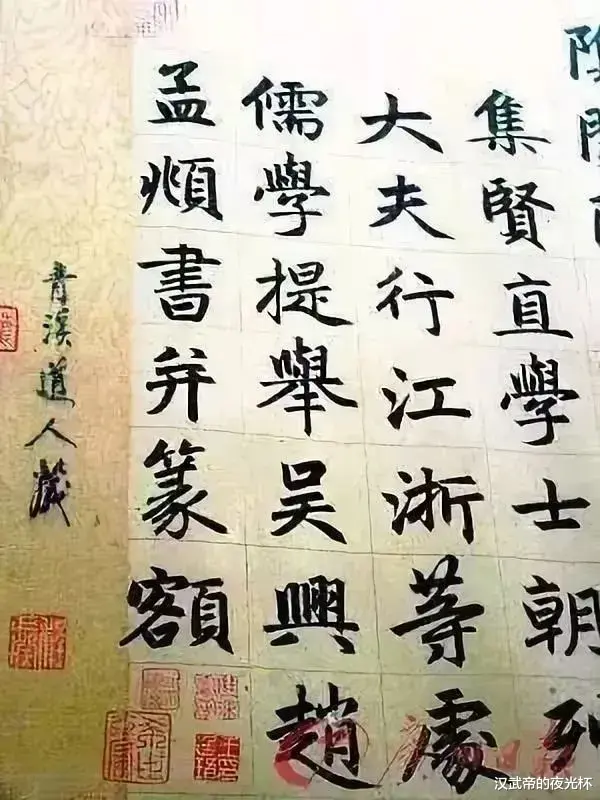 集賢直學士朝列
大夫行江浙等處
儒學提舉吳興趙
孟頫書并篆額
青溪道人藏
汉武帝的夜光杯